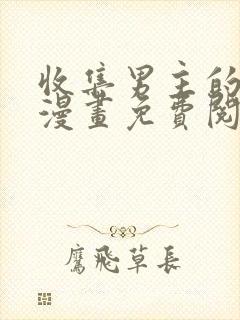 收集男主的
漫畫免費閱
鷹飛草長